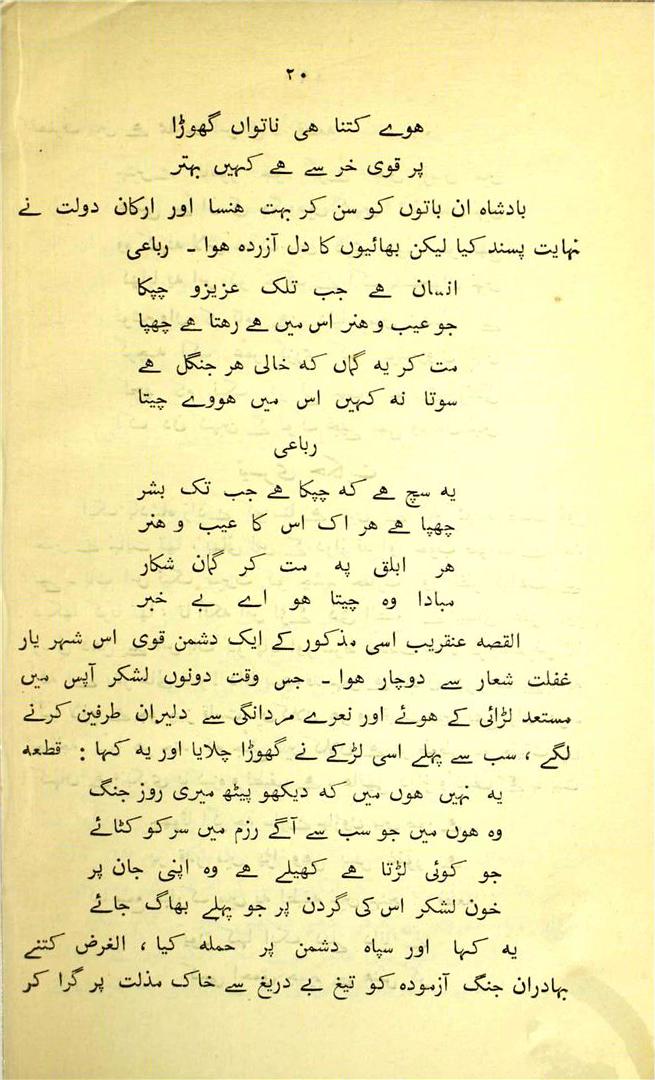 ۲۰
ھوے کتنا ھی ناتواں گھوڑا
پر قوی خر سے ھے کہیں بہتر
بادشاہ ان باتوں کو سن کر بہت ھنسا اور ارکان دولت نے
نہایت پسند کیا لیکن بھائیوں کا دل آزردہ ھوا ۔ رباعی
انسان ھے جب تلک عزیزو چپکا
جو عیب و ھنر اس میں ھے رھتا ھے چھپا
مت کر یه گماں که خالی ھر جنگل ھے
سوتا نه کہیں اس میں ھووے چیتا
رباعی
یه سچ ھے که چپکا ھے جب تک بشر
چھپا ھے ھر اک اس کا عیب و ھنر
ھر ابلق په مت کر گمان شکار
مبادا وہ چیتا ھو اے بے خبر
القصه عنقریب اسی مذکور کے ایک دشمن قوی اس شہر یار
غفلت شعار سے دوچار ھوا ۔ جس وقت دونوں لشکر آپس میں
مستعد لڑائی کے ھوئے اور نعرے مردانگی سے دلیران طرفین کرنے
لگے ، سب سے پہلے اسی لڑکے نے گھوڑا چلایا اور یه کہا : قطعه
یه نہیں ھوں میں که دیکھو پیٹھ میری روز جنگ
وہ ھوں میں جو سب سے آگے رزم میں سر کو کٹائے
جو کوئی لڑتا ھے کھیلے ھے وہ اپنی جان پر
خون لشکر اس کی گردن پر جو پہلے بھاگ جائے
یه کہا اور سپاہ دشمن پر حمله کیا ، الغرض کتنے
بہادران جنگ آزمودہ کو تیغ بے دریغ سے خاک مذلت پر گرا کر